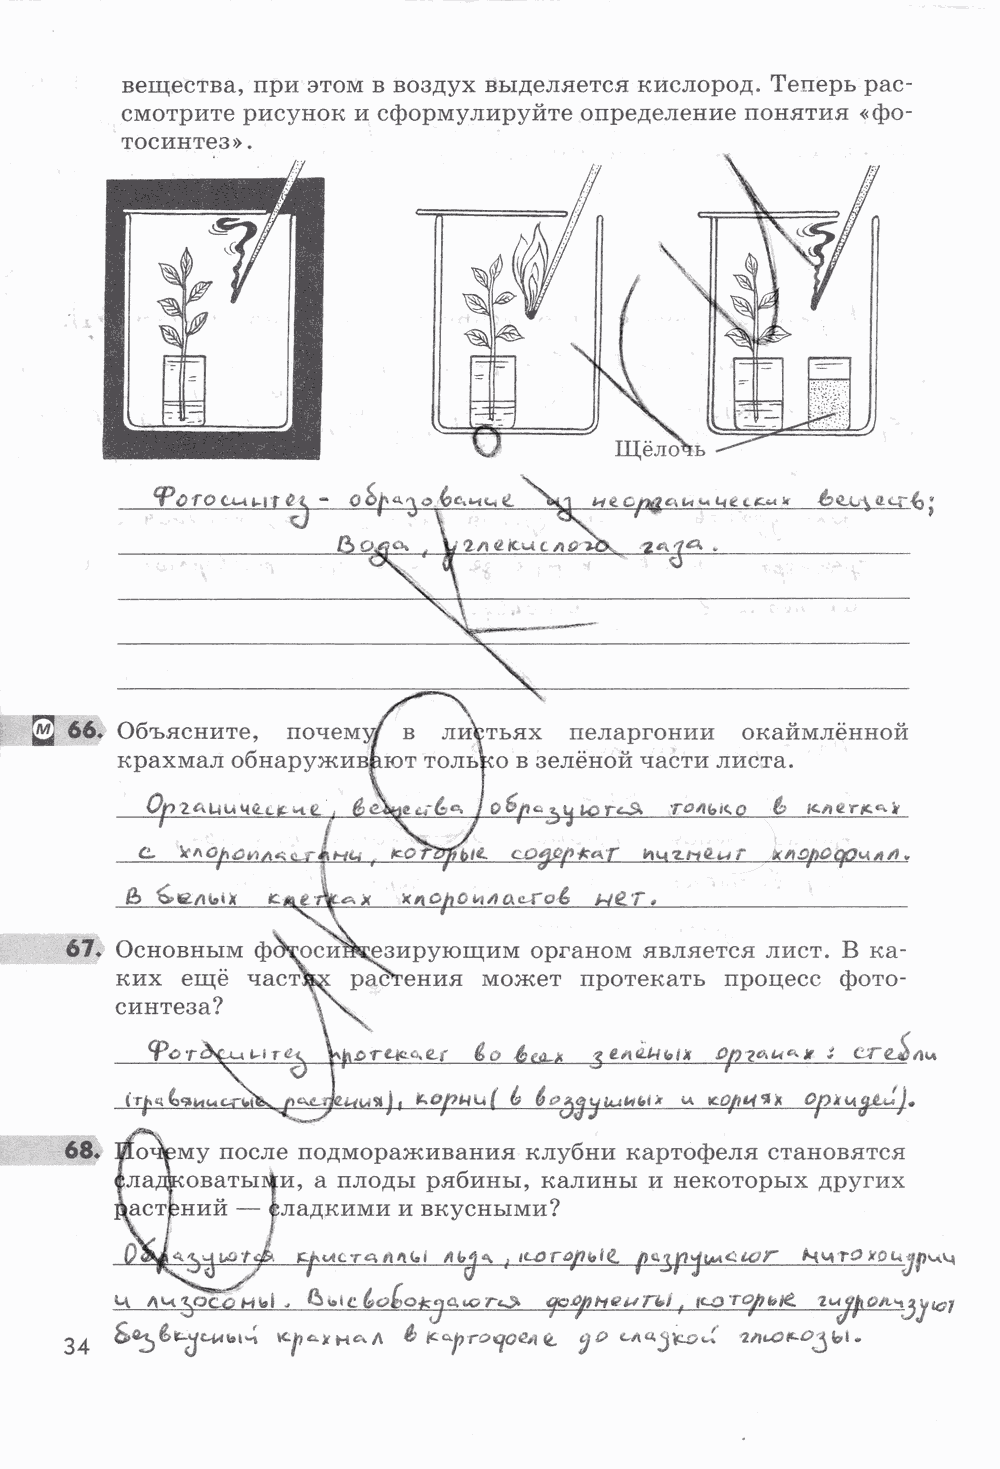 вещества, при этом в воздух выделяется кислород. Теперь рас-
смотрите рисунок и сформулируйте определение понятия «фо-
тосинтез».
Щёлочь
Фотосинтез - образование из неорганических веществ;
Вода, углекислого газа.
М 66. Объясните, почему в листьях пеларгонии окаймлённой
крахмал обнаруживают только в зелёной части листа.
Органические вещества образуются только в клетках
с хлоропластами, которые содержат пигмент хлорофилл.
В белых клетках хлоропластов нет.
67. Основным фотосинтезирующим органом является лист. В ка-
ких ещё частях растения может протекать процесс фото-
синтеза?
Фотосинтез протекает во всех зелёных органах: стебли
(травянистые растения), корни (в воздушных и корнях орхидей).
68. Почему после подмораживания клубни картофеля становятся
сладковатыми, а плоды рябины, калины и некоторых других
растений — сладкими и вкусными?
Образуются кристаллы льда, которые разрушают митохондрии
и лизосомы. Высвобождаются форменты, которые гидролизуют
безвкусный крахмал в картофеле до сладкой глюкозы.
34